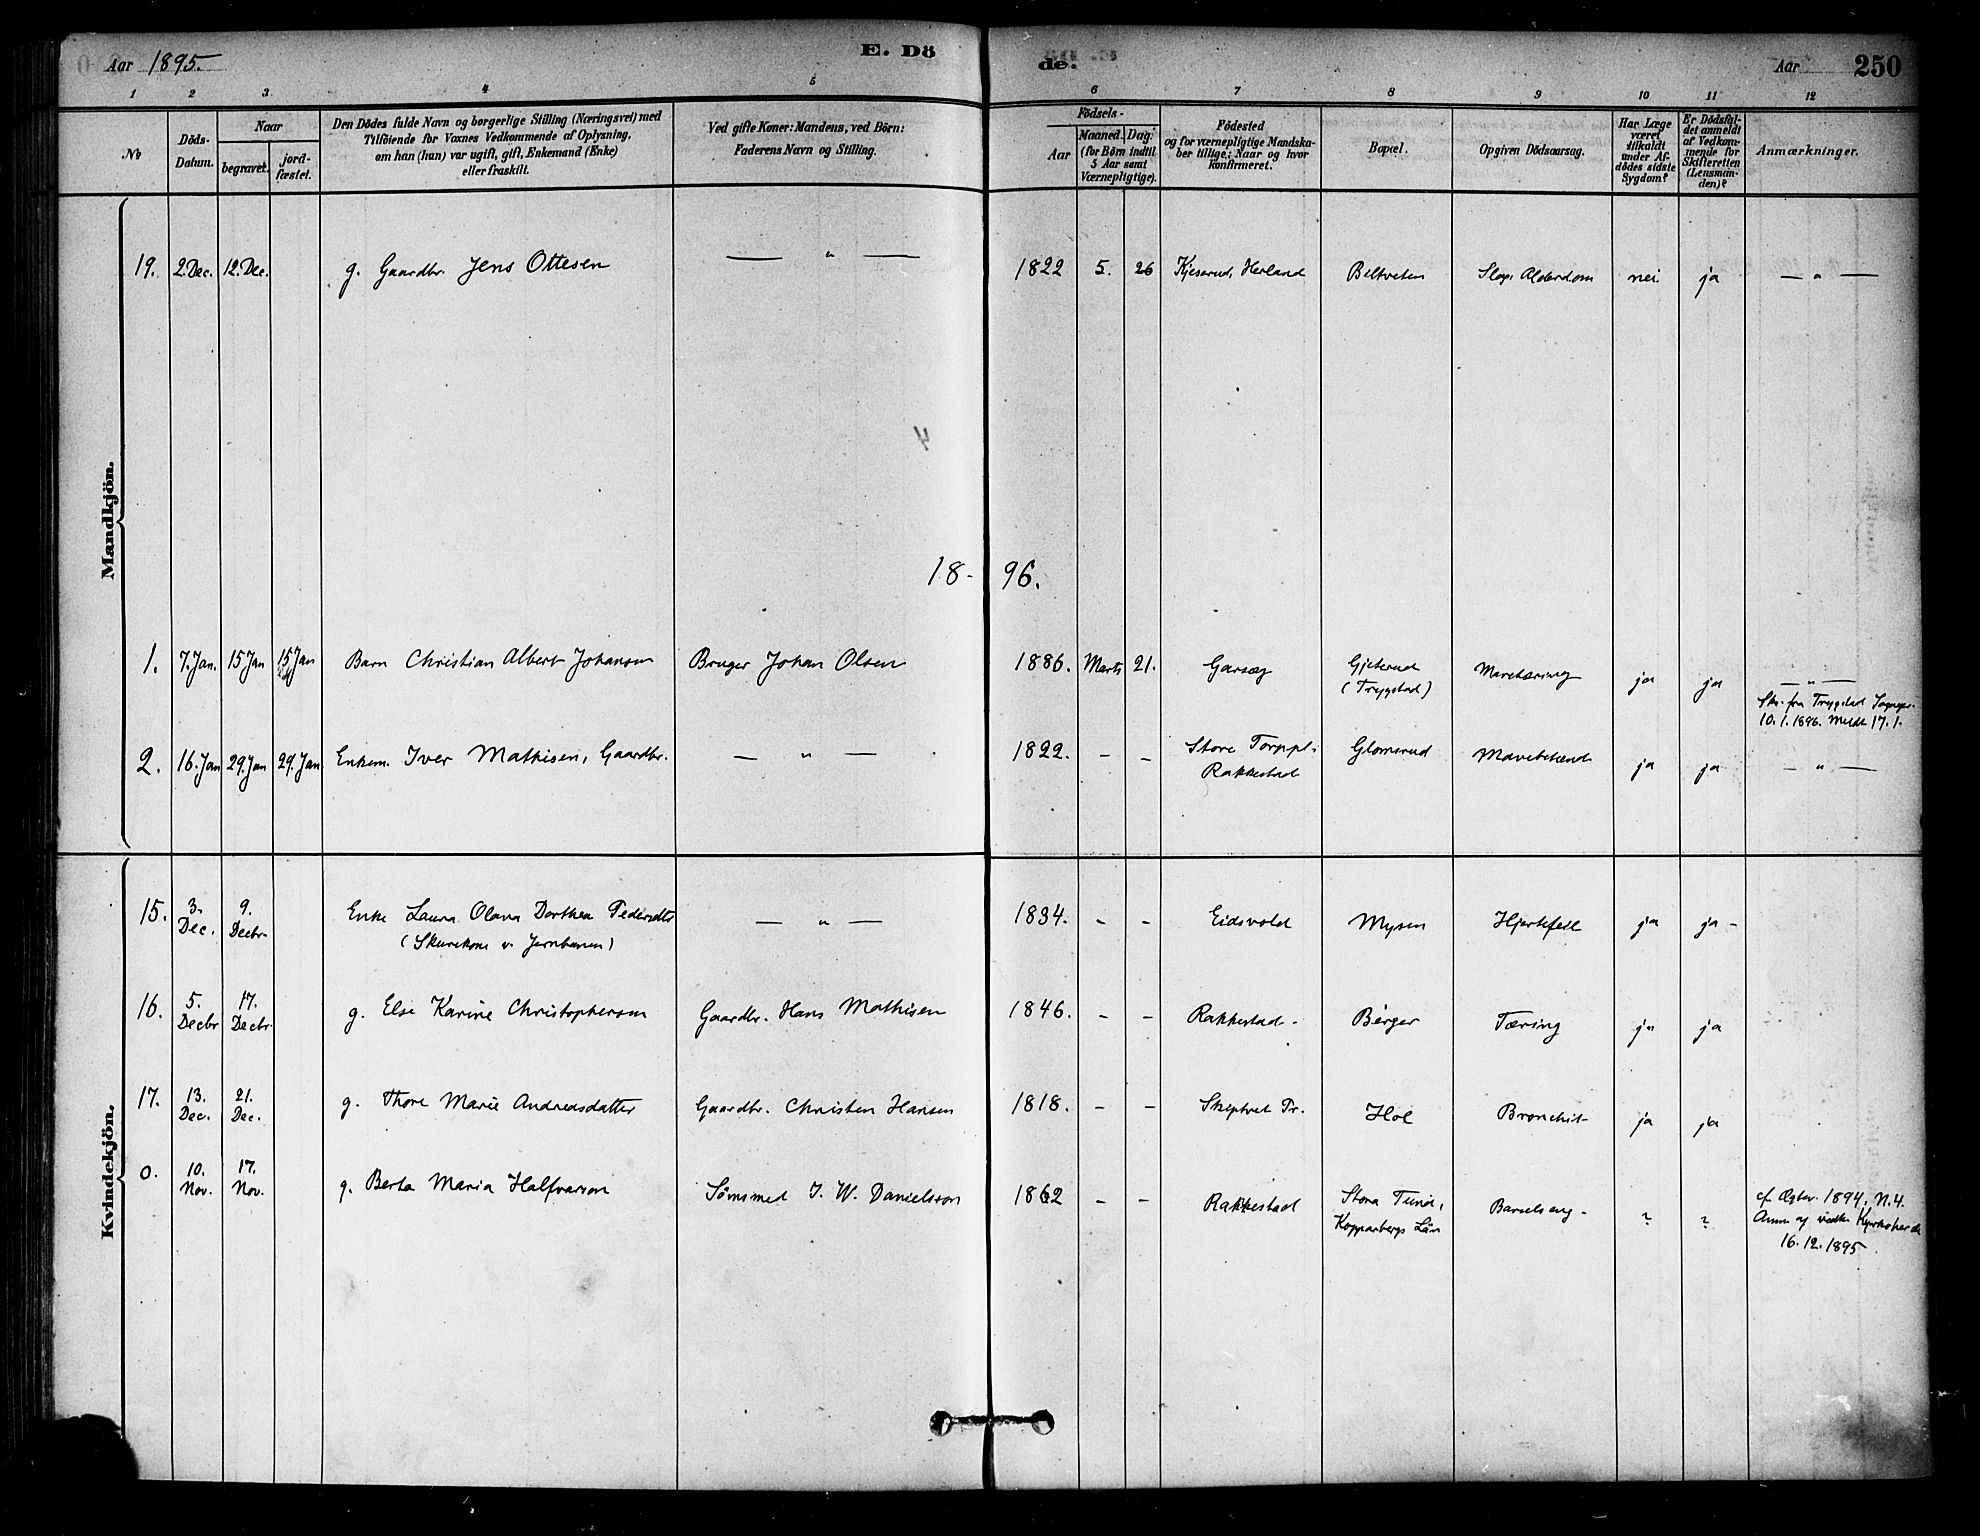 Aar 1895.
E. Dö
de.
Aar
250
1 2 3 4 5 6 7 8 9 10 11 12
No
Döds-
Datum.
Naar
begravet.
jord-
fæstet.
Den Dödes fulde Navn og borgerlige Stilling (Næringsvei) med
Tilföiende for Voxnes Vedkommende af Oplysning,
om han (hun) var ugift, gift, Enkemand (Enke)
eller fraskilt.
Ved gifte Koner: Mandens, ved Börn:
Faderens Navn og Stilling.
Födsels-
Aar
Maaned. Dag.
(for Børn indtil
5 Aar samt
Værnepligtige).
Födested
og for værnepligtige Mandska-
ber tillige: Naar og hvor
konfirmeret.
Bopæl.
Opgiven Dödsaarsag.
Har Læge
været
tilkaldt
under Af-
dödes sidste
Sygdom?
Er Dödsfal-
det anmeldt
af Vedkom-
mende for
Skifteretten
(Lensman-
den)?
Anmærkninger.
Mandkjön.
19. 2. Dec. 12. Dec. g. Gaardbr. Jens Ottesen — " — 1822 5. 26 Kjeserud, Herland Biltveten Slag, Alderdom nei ja — " —
18-96.
1. 7. Jan. 15 Jan 15 Jan Barn Christian Albert Johansen Bruger Johan Olsen 1886. Marts 21. Garseg Gjeterud
(Trygstad) ja ja — " —
Skr. fra Trygstad Sognepr.
10.1.1896. Meldt 17.1.
2. 16. Jan 29. Jan 29. Jan Enkem. Iver Mathisen, Gaardbr. — " — 1822. - - Store Torppl.
Rakkestad Glomsrud Mavebetænd ja ja — " —
Kvindekjön.
15. 3. Dec. 9. Decbr. Enke Laura Olava Dorthea Pedersdtr
(Skurekone v. Jernbanen) — " — 1834. - - Eidsvold Mysen Hjertefeil ja ja -
16. 5. Decbr 17. Decbr. g. Else Karine Christophersen Gaardbr. Hans Mathisen 1846. - - Rakkestad. Berger Tæring ja ja
17. 13. Dec. 21. Dec. g. Thore Marie Andreasdatter Gaardbr. Christen Hansen 1818. - - Skiptvet Pr. Hol Bronchit- ja ja
0. 10. Nov. 17. Nov. g. Berta Maria Halfvarson J. W. Danielsson 1862 - - Rakkestad Stora Tuna,
Kopparbergs Län Barselseng. ? ?
cf. 1894, N.4.
Kyrkoherde
16.12.1895.